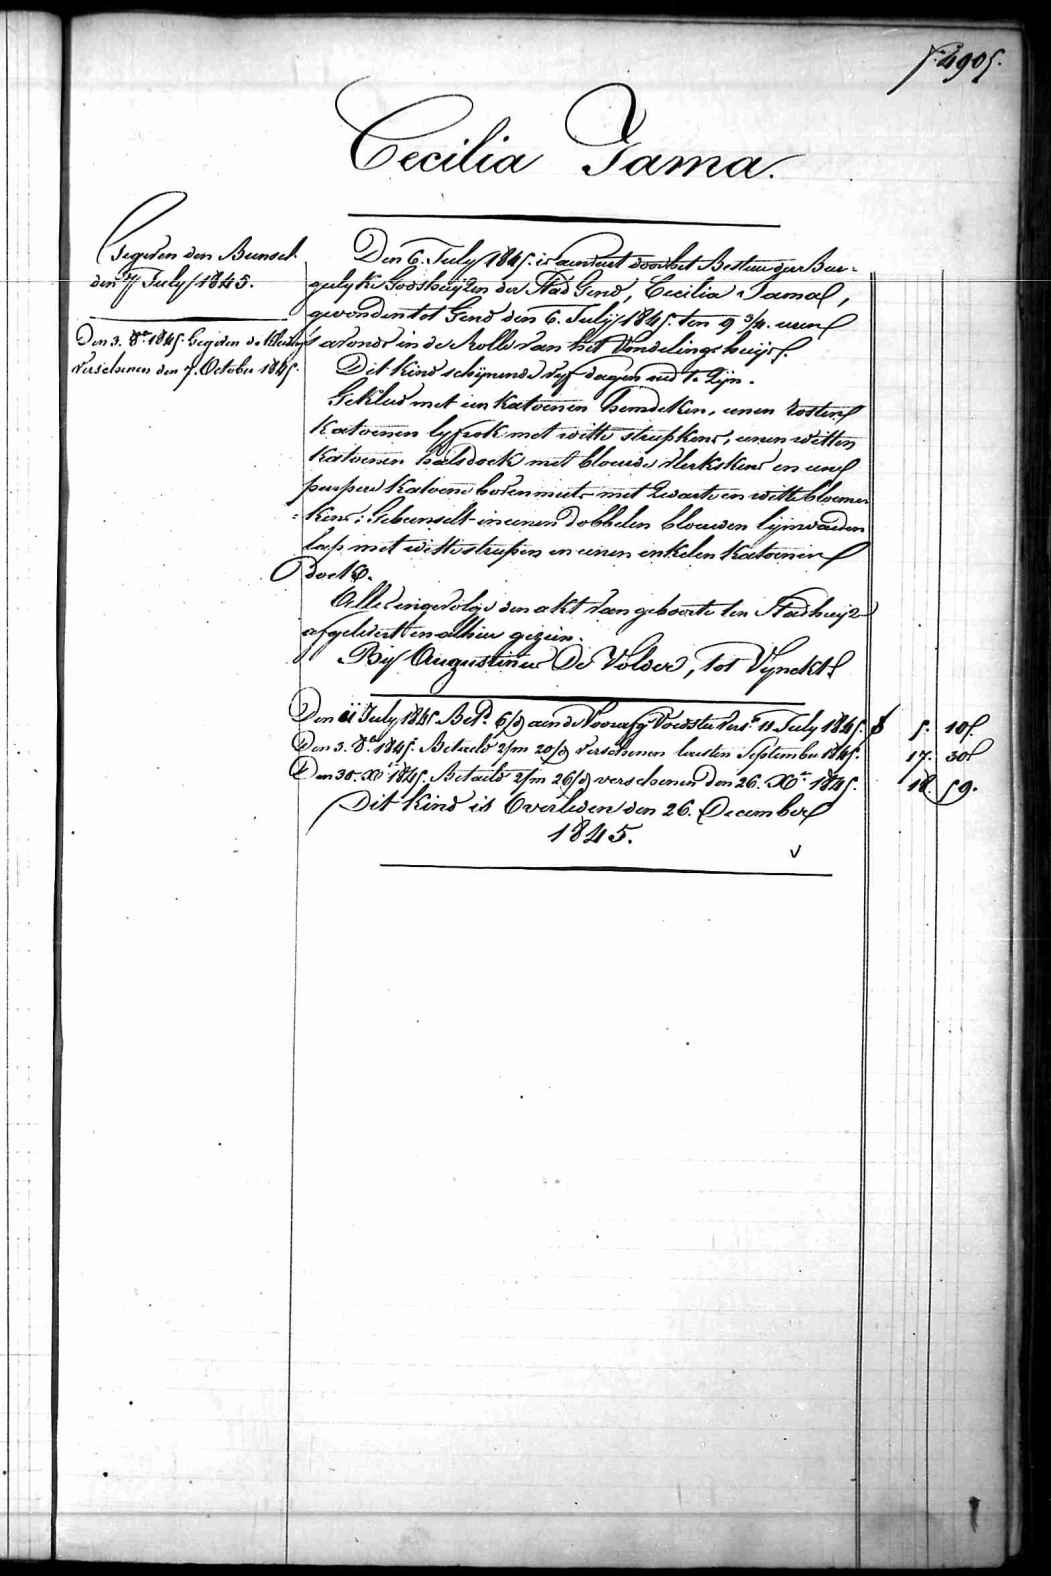 f.º 4905.
Cecilia Jama.
Gegeven den Bunsel
den 7 July 1845.
Den 3. 8.er 1845. Gegeven de Kleedij
verschenen den 7. October 1845.
Den 6. July 1845. is aenveert door het Bestuur der Bur-
gelyke Godshuijzen der Stad Gend, Cecilia Jama,
gevonden tot Gend den 6. July 1845. ten 9 3/4. uren
's avonds in de Rolle van het Vondelingshuijs.
Dit Kind schijnende vyf dagen oud te Zijn.
Gekleed met een Katoenen hemdeken, eenen rosten
Katoenen lyfrok met witte streepkens, eenen witten
Katoenen halsdoek met blouwe vlerkskens en eene
purpere Katoene bovenmuts met Zwarte en witte bloemen
=kens; Gebunselt in eenen dobbelen blouwen lijnwaeden
lap met witte strepen en eenen enkelen Katoenen
doek.
Alles ingevolge den akt van geboorte ten Stadhuijze
afgelevert en alhier gezien.
Bij Augustinus De Volder, tot Vynckt
Den 11 July 1845 Bet.d 6/d aen de Voorafg. Voedster vers.n 11 July 1845. f 5. 105.
Den 3. 8.er 1845. Betaeld 2/m 20/d verschenen lesten September 1845. 17. 30
Den 30. X.r 1845. Betaeld 2/m 26/d verschenen den 26. X.r 1845. 18. 59.
Dit kind is Overleden den 26. December
1845.